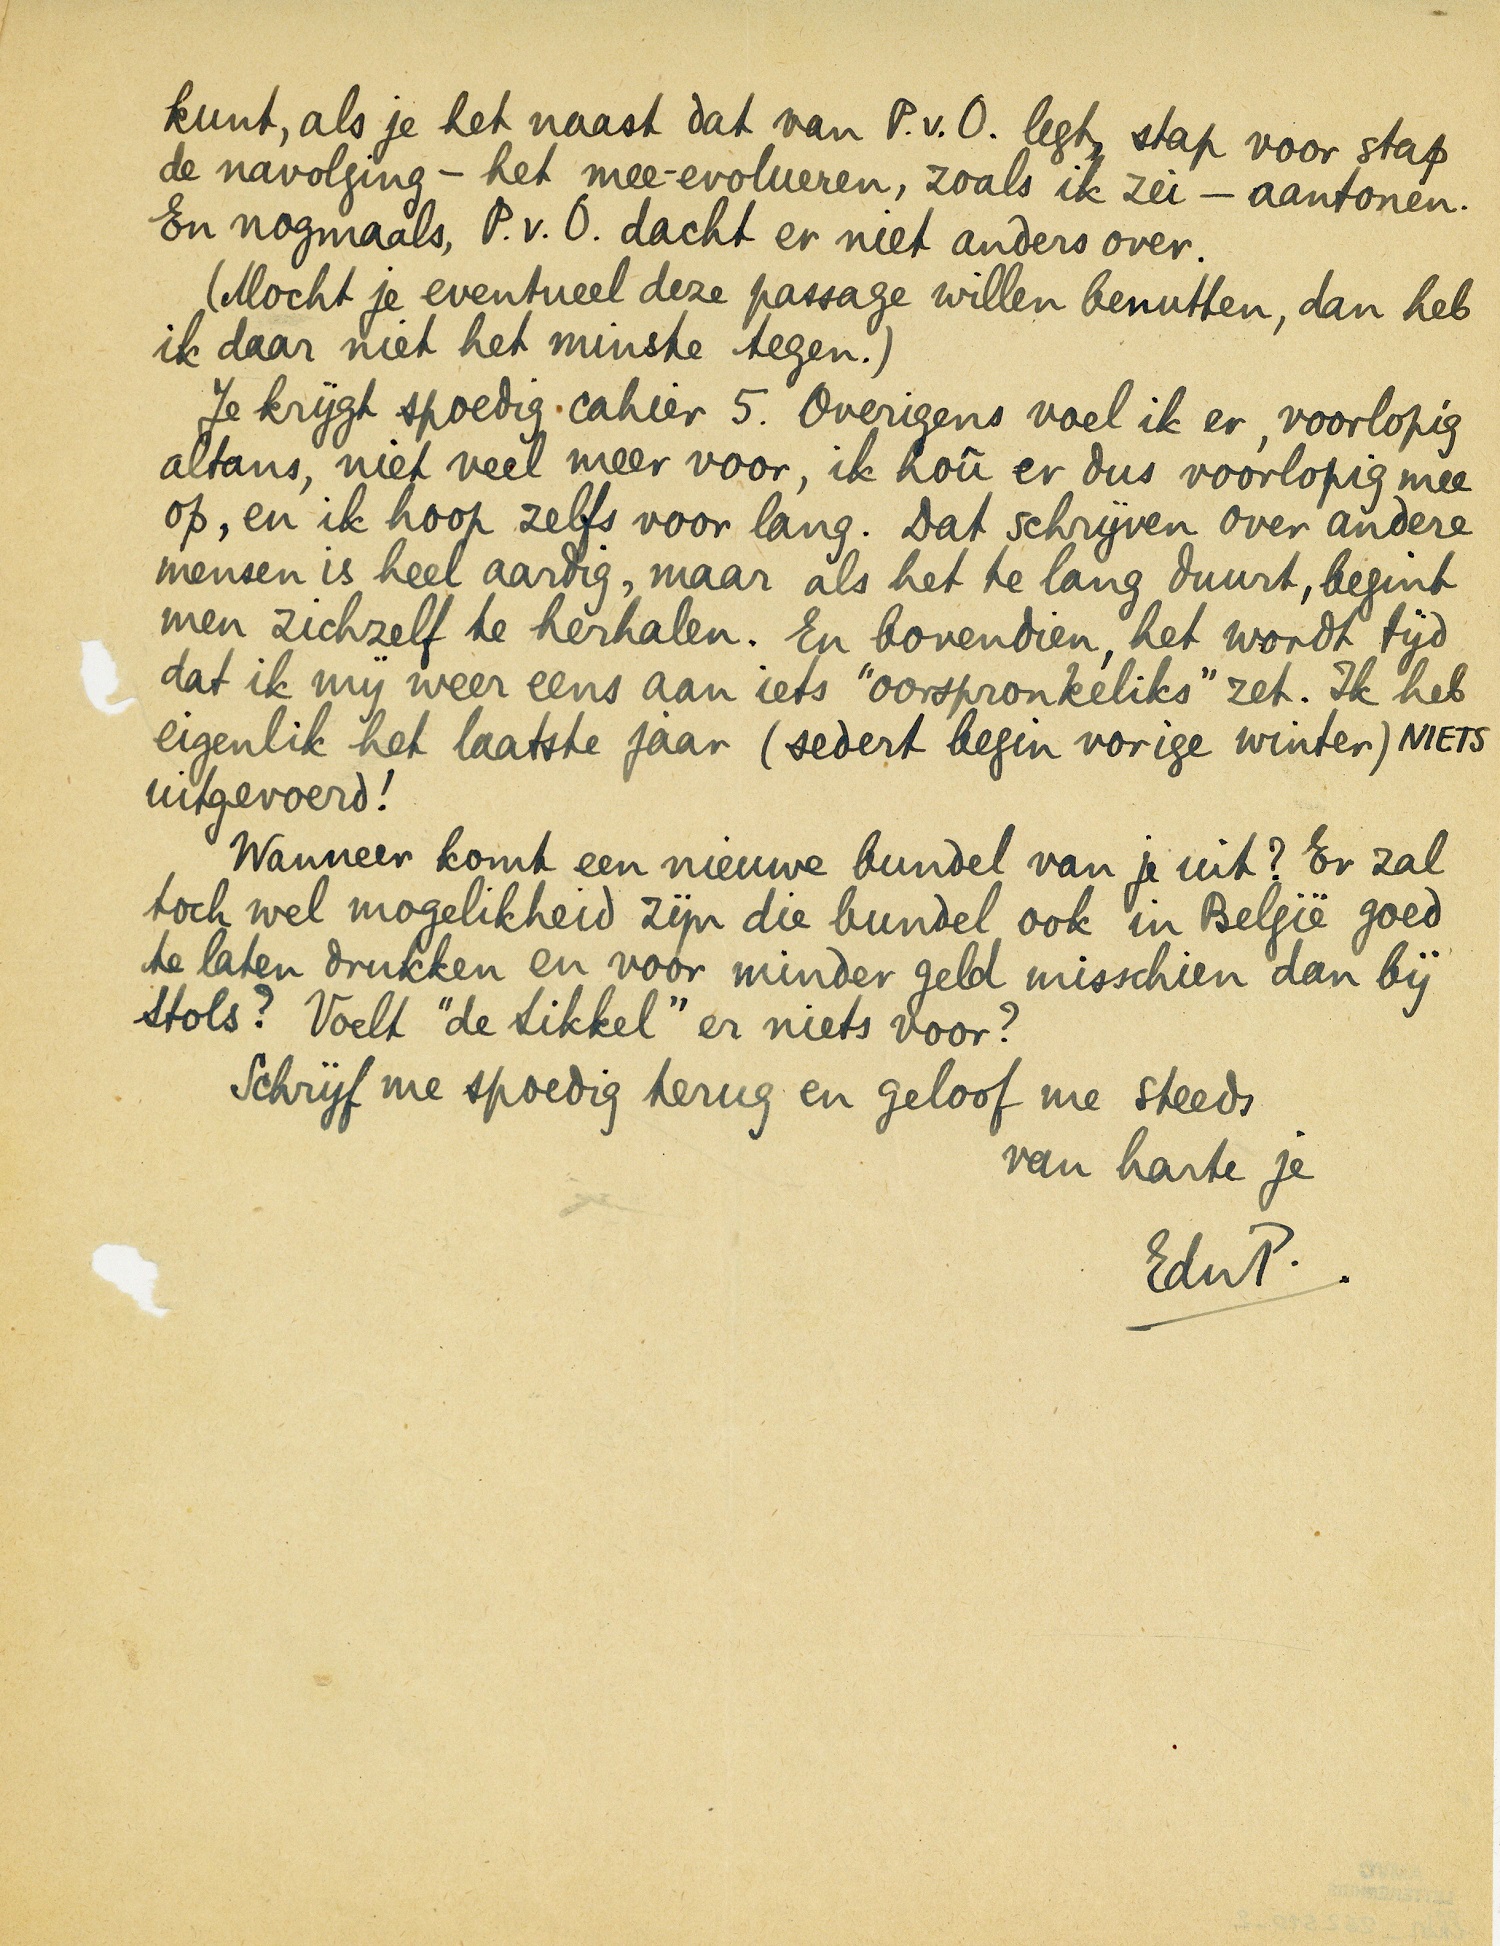 kunt, als je het naast dat van P.v.O. legt, stap voor stap
de navolging – het mee-evolueren, zoals ik zei – aantonen.
En nogmaals, P.v.O. dacht er niet anders over.
(Mocht je eventueel deze passage willen benutten, dan heb
ik daar niet het minste tegen.)
Je krijgt spoedig cahier 5. Overigens voel ik er, voorlopig
altans, niet veel meer voor, ik hoû er dus voorlopig mee
op, en ik hoop zelfs voor lang. Dat schrijven over andere
mensen is heel aardig, maar als het te lang duurt, begint
men zichzelf te herhalen. En bovendien, het wordt tijd
dat ik mij weer eens aan iets "oorspronkeliks" zet. Ik heb
eigenlik het laatste jaar (sedert begin vorige winter) NIETS
uitgevoerd!
Wanneer komt een nieuwe bundel van je uit? Er zal
toch wel mogelikheid zijn die bundel ook in België goed
te laten drukken en voor minder geld misschien dan bij
Stols? Voelt "de Sikkel" er niets voor?
Schrijf me spoedig terug en geloof me steeds
van harte je
EduP.